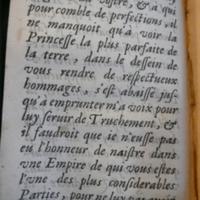 la vostre, & à qui
pour comble de perfections, il
ne manquoit qu'à voir la
Princesse la plus parfaite de
la terre, dans le dessein de
vous rendre de respectueux
hommages, s'est abaissé jus-
qu'à emprunter ma voix pour
luy seruir de Truchement, &
il faudroit que ie n'eusse pas
eu l'honneur de naistre dans
vne Empire de qui vous estes
l'vne des plus considerables
Parties, pour ne luy pas